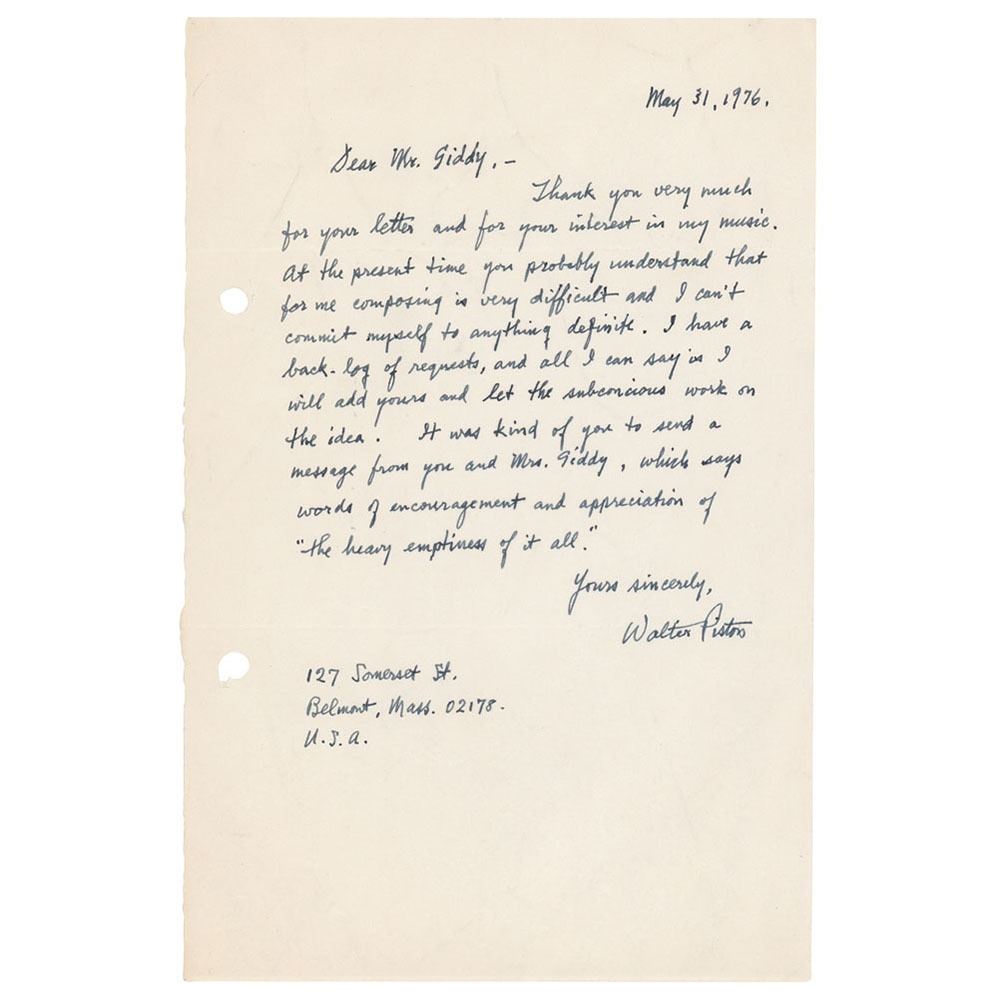 May 31, 1976.
Dear Mr. Giddy, –
Thank you very much
for your letter and for your interest in my music.
At the present time you probably understand that
for me composing is very difficult and I can't
commit myself to anything definite. I have a
back-log of requests, and all I can say is I
will add yours and let the subconcious work on
the idea. It was kind of you to send a
message from you and Mrs. Giddy, which says
words of encouragement and appreciation of
"the heavy emptiness of it all."
Yours sincerely,
Walter Piston
127 Somerset St.
Belmont, Mass. 02178.
U.S.A.